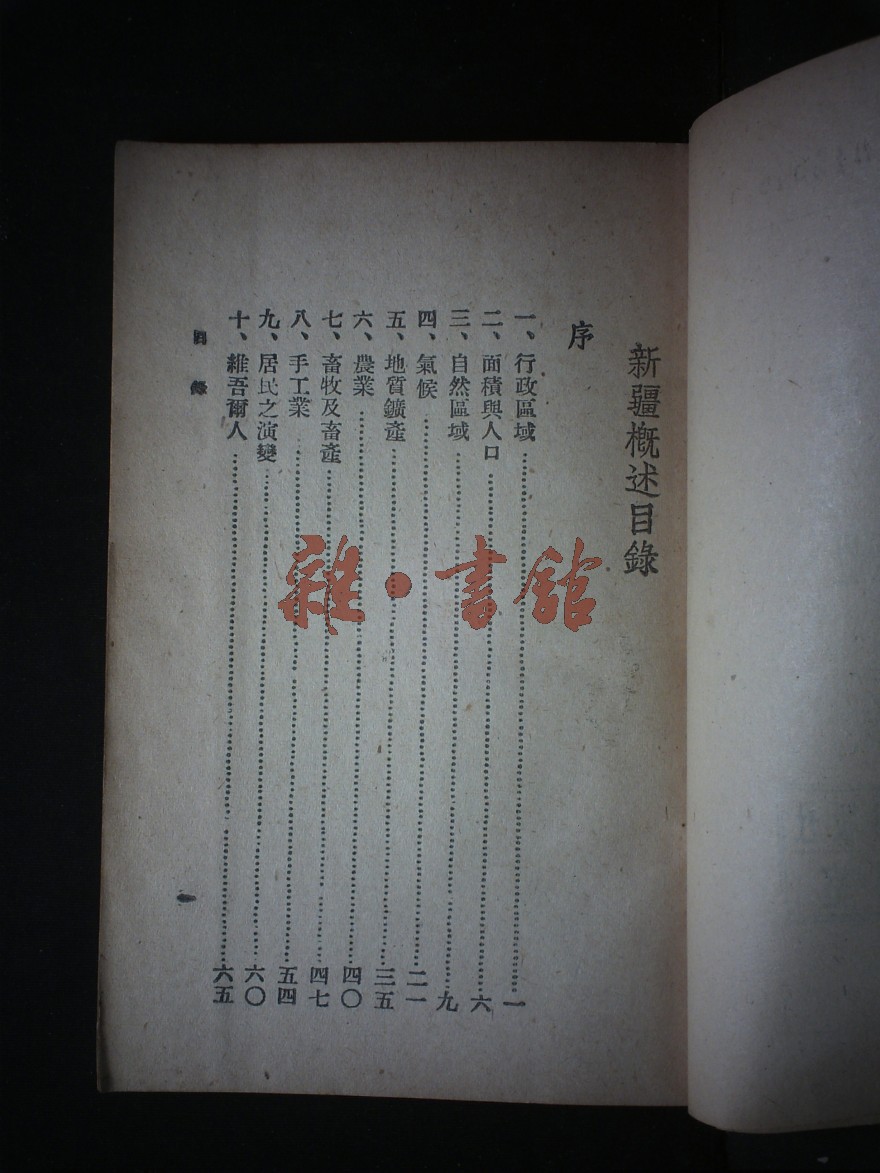 新疆概述目錄
序
一、行政區域……一
二、面積與人口……六
三、自然區域……九
四、氣候……二一
五、地質鑛產……三五
六、農業……四〇
七、畜牧及畜產……四七
八、手工業……五四
九、居民之演變……六〇
十、維吾爾人……六五
目錄
一
雜·書館